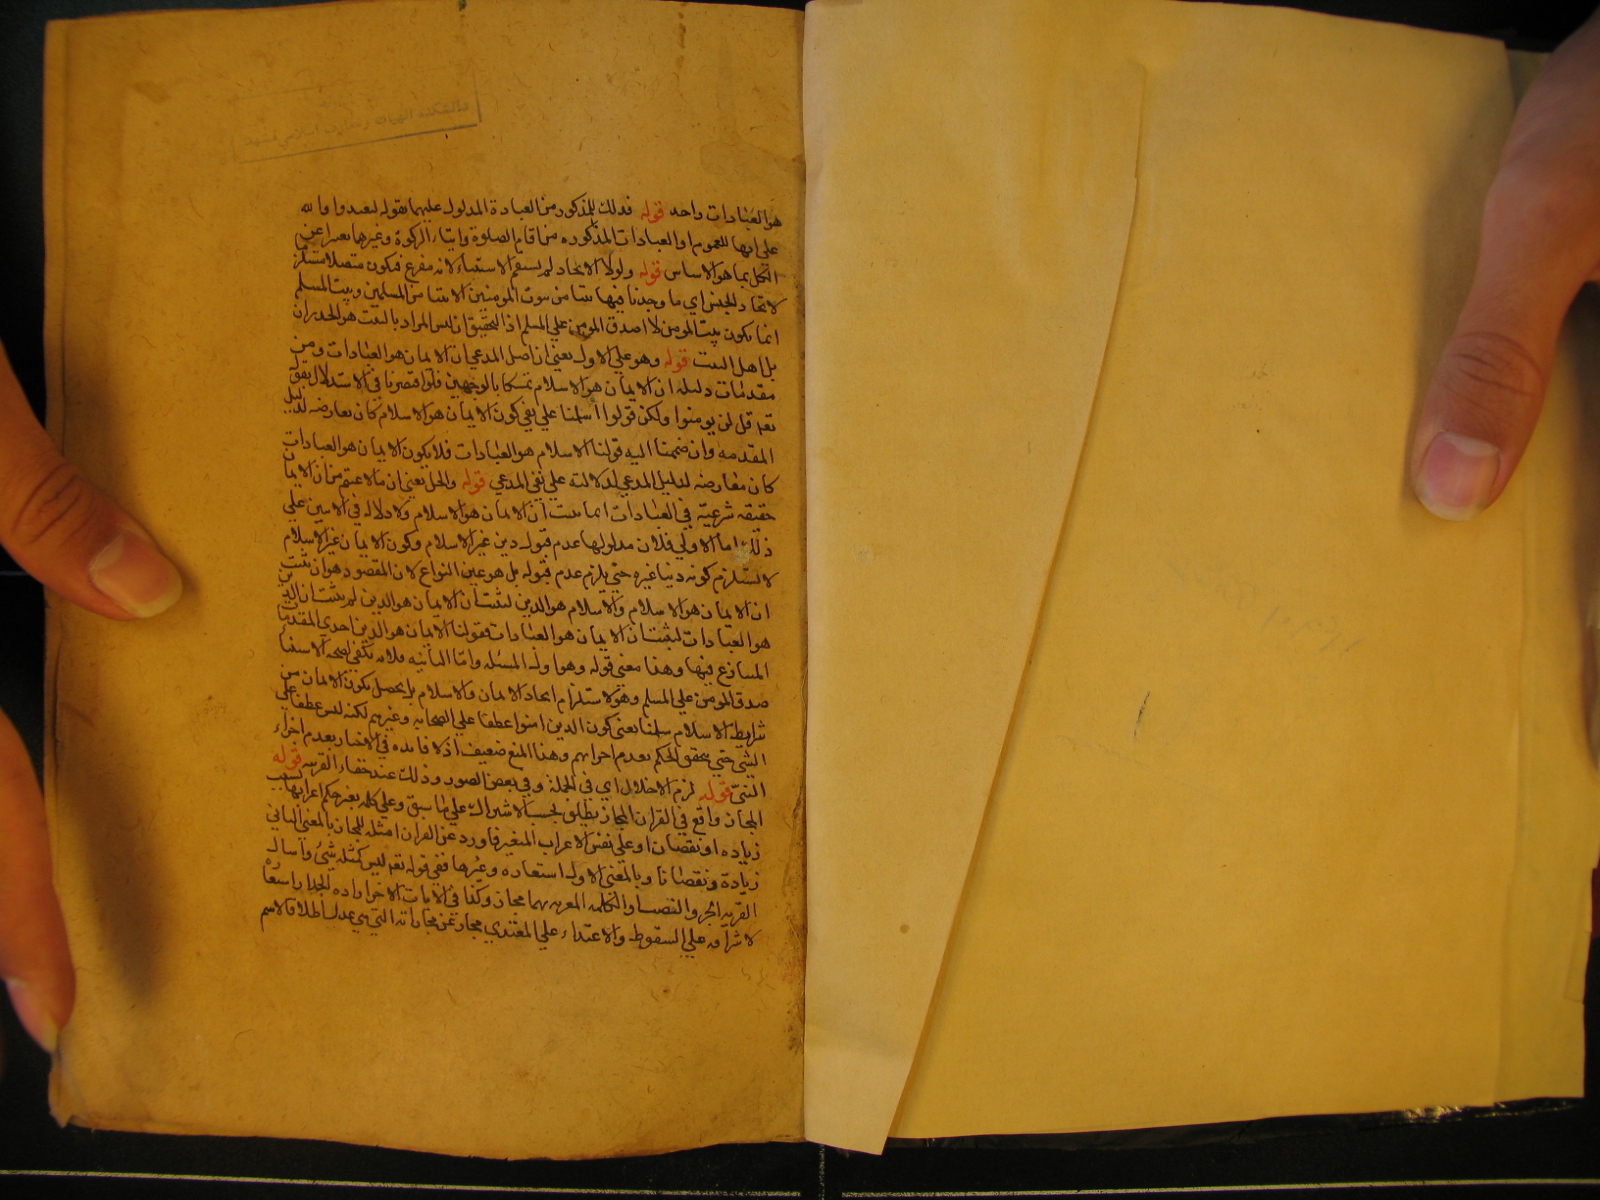 دانشكده الهيات و معارف اسلامي مشهد
هو العبادات واحد قوله فذلك للمذكور من العبادة المدلول عليها بقوله ليعبدوا والله
على انها للعموم او العبادات المذكوره من اقام الصلوة وايتاء الزكوة وغيرها تعبيرا عن
الكل بما هو الاساس قوله ولولا الاتحاد لم يستقم الاستثناء لانه مفرغ فيكون متصلا مستلزما
لاتحاد الجنس اي ما وجدنا فيها بيتا من بيوت المومنين الا بيتا من المسلمين وبيت المسلم
انما يكون بيت المومن لا اصدق المومن علي المسلم اذ التحقيق ان ليس المراد بالبيت هو الجدران
بل اهل البيت قوله وهو علي الاول يعني ان اصل المدعي ان الايمان هو العبادات ومن
مقدمات دليله ان الايمان هو الاسلام تمسكا بالوجهين فلو اقتصرنا في الاستدلال بقوله
تعه قل لن يومنوا ولكن قولوا اسلمنا علي نفي كون الايمان هو الاسلام كان معارضه لدليل
المقدمه وان ضممنا اليه قولنا الاسلام هو العبادات فلا يكون الايمان هو العبادات
كان معارضه لدليل المدعي لدلالته علي نفي المدعي قوله والحل يعني ان ما لاعيتم من ان الايمان
حقيقه شرعيه في العبادات انما يثبت ان الايمان هو الاسلام ولا دلاله في الايتين علي
ذلك اما الاولي فلان مدلولها عدم قبول دين غير الاسلام وكون الايمان غير الاسلام
لا يستلزم كونه دينا غيره حتي يلزم عدم قبوله بل هو عين النزاع لان المقصود هو ان يثبت
ان الايمان هو الاسلام والاسلام هو الدين ليثبت ان الايمان هو الدين لم يثبت ان الدين
هو العبادات ليثبت ان الايمان هو العبادات فقولنا الايمان هو الدين احدي المقدمات
المنازع فيها وهذا معني قوله وهو اول المسئله واما الثانيه فلانه يكفي لصحه الاستثناء
صدق المومن علي المسلم وهو لا يستلزم اتحاد الايمان والاسلام بل يحصل بكون الايمان من
شرايط الاسلام سلمنا يعني كون الذين امنوا عطفا علي الصحابه وغيرهم لكنه ليس عطفا علي
الشي حتي يتحقق الحكم بعدم اجرائهم وهذا المنع ضعيف اذ لا فايده في الاخبار بعدم اجزاء
النبي قوله لزم الاخلال اي في الجملة وفي بعض الصور وذلك عند خفاء القرينه قوله
المجاز واقع في القران المجاز يطلق بحسب الاشتراك علي ما سبق وعلي كلمه تغير حكم اعرابها بسبب
زياده او نقصان او علي نفس الاعراب المتغير فاورد عن القران امثله للمجاز بالمعني الثاني
زيادة ونقصانا وبالمعني الاول استعاره وغيرها ففي قوله تعه ليس كمثله شيء واسال
القريه الجر والنصب او الكلمه المعربه بهما مجاز وكذا في الايات الاخر اراده الجدار استعاره
لاشرافه علي السقوط والاعتداء علي المعتدي مجاز عن مجازاته التي هي عدل اطلاقا لاسم